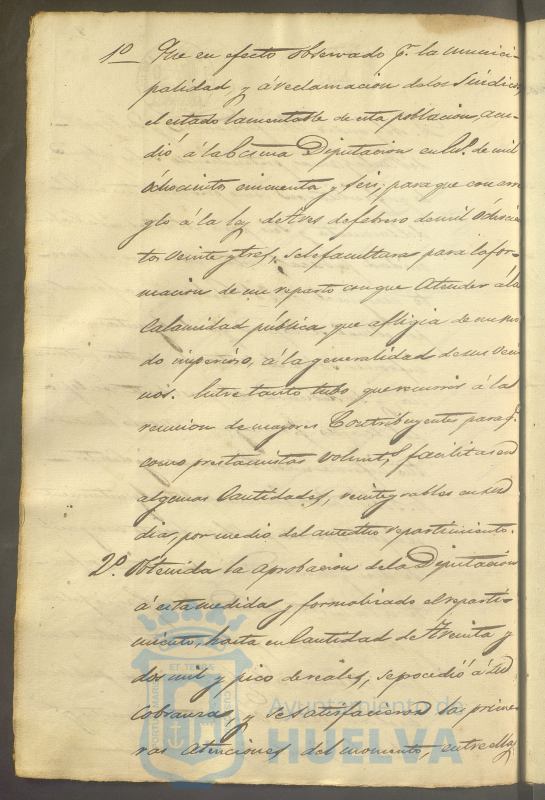 1º Que en efecto observado pr. la munici-
palidad, y á reclamacion de los Sindicos,
el estado lamentable de esta poblacion, acu-
dió á la Ecsma Diputacion en de mil
Ochocientos cincuenta y seis, para que con arre
glo á la ley de tres de febrero de mil Ochocien
tos veinte y tres, se le facultara para la for-
macion de un reparto con que atender á la
Calamidad pública que afligia de un mo
do imperioso, á la generalidad de sus veci
nos. Entre tanto tubo que recurrir á la
reunion de mayores Contribuyentes, para q.
como prestamistas volunts. facilitasen
algunas Cantidades, reintegrables en su
dia, por medio del antedho repartimiento.
2º Obtenida la aprobacion de la Diputacion
á esta medida y formalizado el reparti-
miento, hasta en Cantidad de treinta y
dos mil y pico de reales, se procedió á su
Cobranza, y se satisfacieron las prime
ras atenciones del momento, entre ellas
Ayuntamiento de
HUELVA